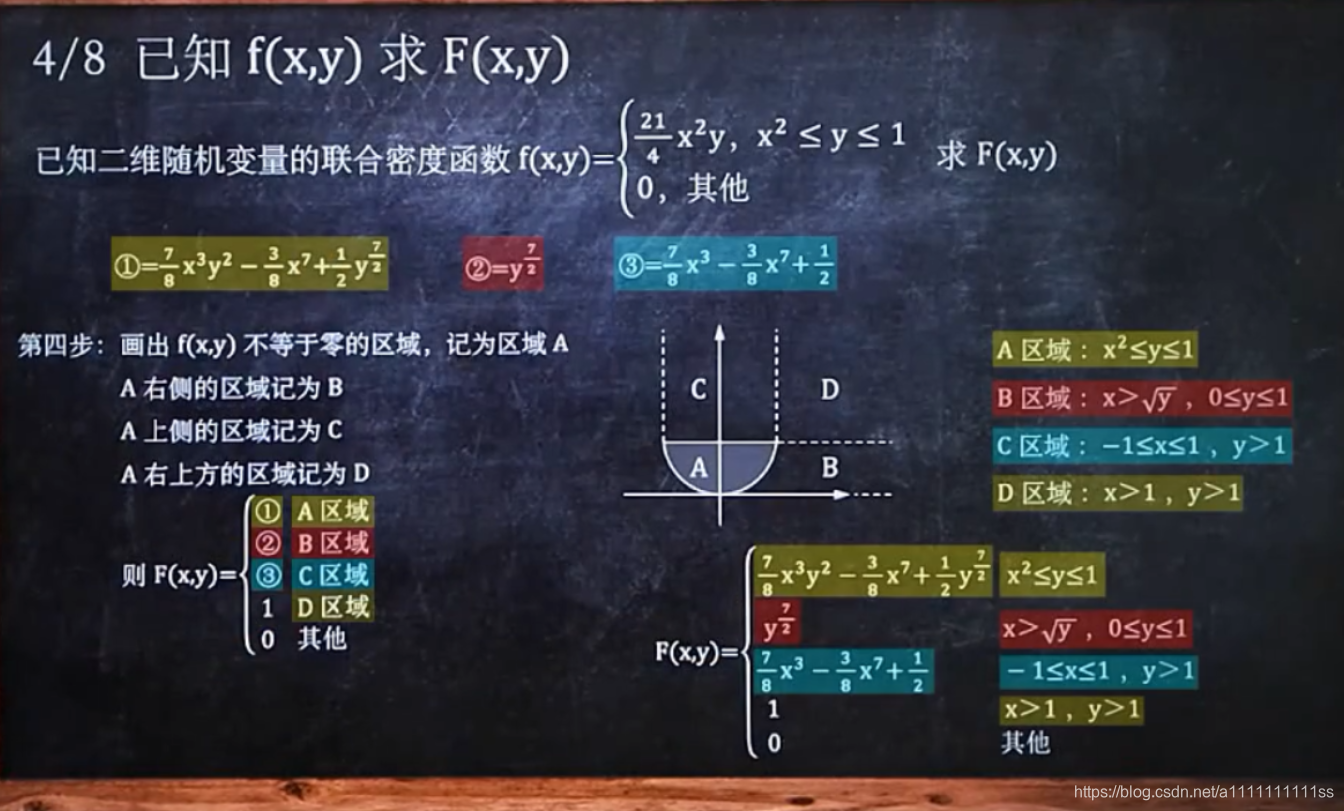 4/8 已知 f(x,y) 求 F(x,y)
已知二维随机变量的联合密度函数 f(x,y)={ 21/4 x²y, x² ≤ y ≤ 1 求 F(x,y)
0, 其他
①=7/8 x³y² − 3/8 x⁷+1/2 y^(7/2) ②=y^(7/2) ③=7/8 x³ − 3/8 x⁷+1/2
第四步：画出 f(x,y) 不等于零的区域，记为区域 A
A 右侧的区域记为 B
A 上侧的区域记为 C
A 右上方的区域记为 D
则 F(x,y)={
① A 区域
② B 区域
③ C 区域
1 D 区域
0 其他
C D
A B
A 区域：x²≤y≤1
B 区域：x>√y，0≤y≤1
C 区域：−1≤x≤1，y>1
D 区域：x>1，y>1
F(x,y)={
7/8 x³y² − 3/8 x⁷+1/2 y^(7/2) x²≤y≤1
y^(7/2) x>√y，0≤y≤1
7/8 x³ − 3/8 x⁷+1/2 −1≤x≤1，y>1
1 x>1，y>1
0 其他
https://blog.csdn.net/a1111111111ss